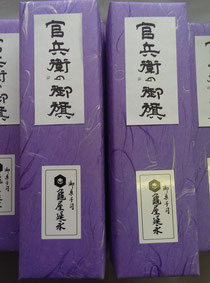 官兵衛の御旗
御菓子司
亀屋延永
官兵衛の御旗
御菓子司
亀屋延永